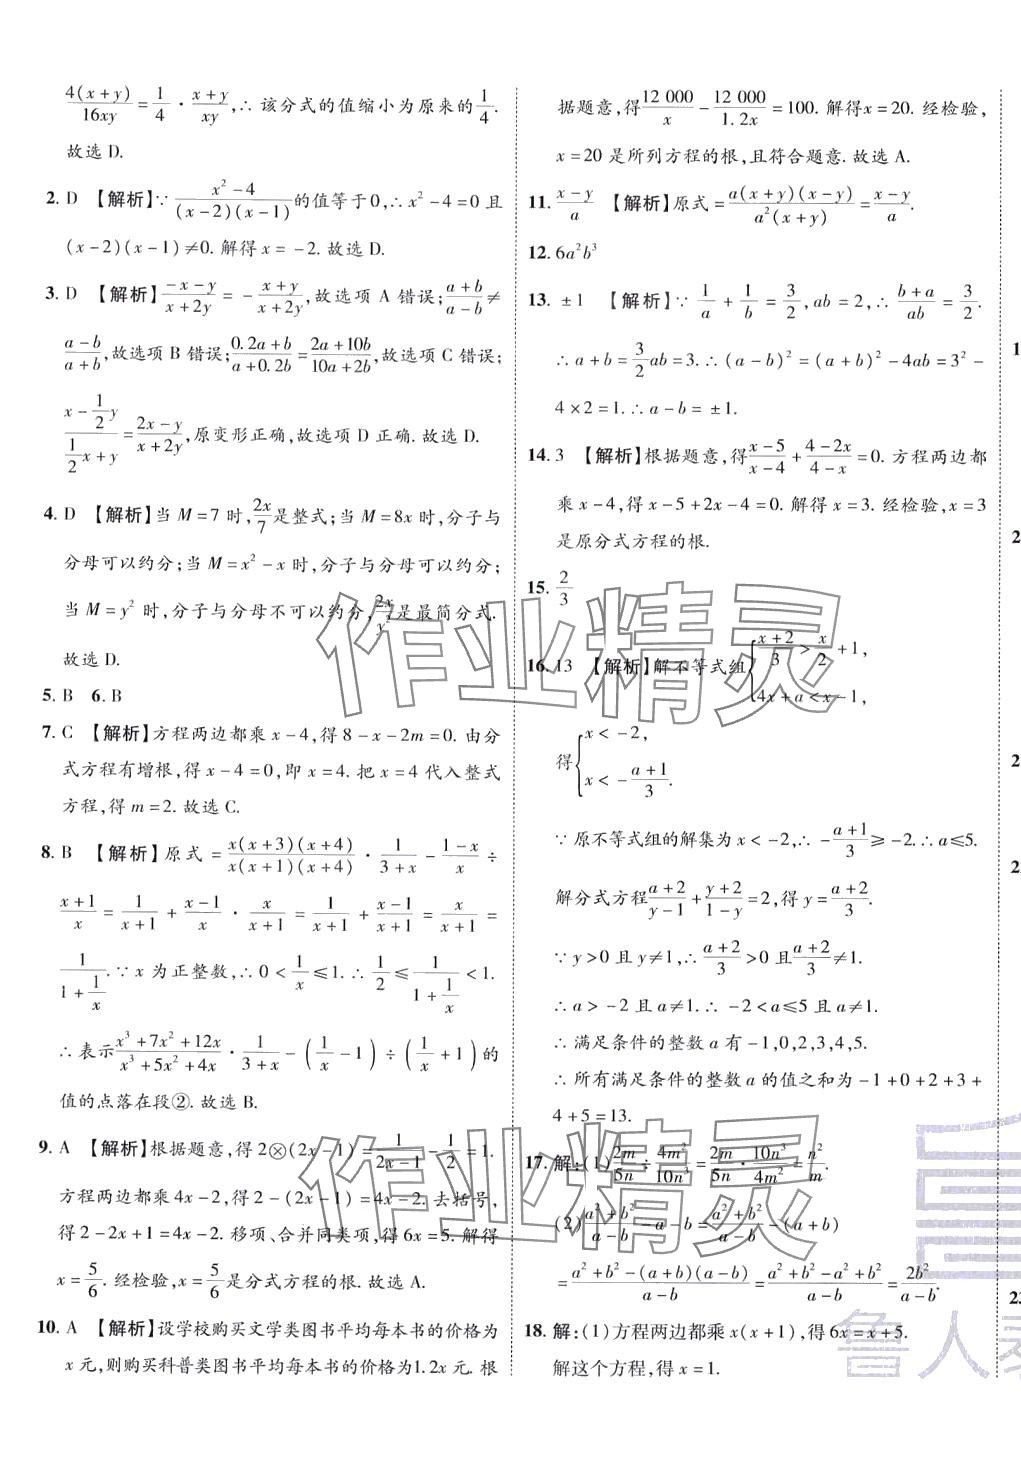 4(x+y)/16xy = 1/4 · (x+y)/xy, ∴ 该分式的值缩小为原来的 1/4.
故选 D.
2. D 【解析】∵ (x²-4)/((x-2)(x-1)) 的值等于 0, ∴ x²-4=0 且
(x-2)(x-1)≠0. 解得 x=-2. 故选 D.
3. D 【解析】(-x-y)/(x+2y) = -(x+y)/(x+2y), 故选项 A 错误; (a+b)/(a-b) ≠
(a-b)/(a+b), 故选项 B 错误; (0.2a+b)/(a+0.2b) = (2a+10b)/(10a+2b), 故选项 C 错误;
(x-1/2y)/(1/2x+y) = (2x-y)/(x+2y), 原变形正确, 故选项 D 正确. 故选 D.
4. D 【解析】当 M=7 时, 2x/7 是整式; 当 M=8x 时, 分子与
分母可以约分; 当 M=x²-x 时, 分子与分母可以约分;
当 M=y² 时, 分子与分母不可以约分, 2x/y² 是最简分式.
故选 D.
5. B 6. B
7. C 【解析】方程两边都乘 x-4, 得 8-x-2m=0. 由分
式方程有增根, 得 x-4=0, 即 x=4. 把 x=4 代入整式
方程, 得 m=2. 故选 C.
8. B 【解析】原式 = x(x+3)(x+4)/(x(x+1)(x+4)) · 1/(3+x) - (1-x)/x ÷
(x+1)/x = 1/(x+1) + (x-1)/x · x/(x+1) = 1/(x+1) + (x-1)/(x+1) = x/(x+1) =
1/(1+1/x). ∵ x 为正整数, ∴ 0<1/x≤1. ∴ 1/2 ≤ 1/(1+1/x) <1.
∴ 表示 (x³+7x²+12x)/(x³+5x²+4x) · 1/(3+x) - (1/x -1) ÷ (1/x +1) 的
值的点落在段②. 故选 B.
9. A 【解析】根据题意, 得 2⊗(2x-1) = 1/(2x-1) - 1/2 = 1.
方程两边都乘 4x-2, 得 2-(2x-1)=4x-2. 去括号,
得 2-2x+1=4x-2. 移项、合并同类项, 得 6x=5. 解得
x=5/6. 经检验, x=5/6 是分式方程的根. 故选 A.
10. A 【解析】设学校购买文学类图书平均每本书的价格为
x 元, 则购买科普类图书平均每本书的价格为 1.2x 元. 根
据题意, 得 12 000/x - 12 000/1.2x = 100. 解得 x=20. 经检验,
x=20 是所列方程的根, 且符合题意. 故选 A.
11. (x-y)/a 【解析】原式 = a(x+y)(x-y)/(a²(x+y)) = (x-y)/a.
12. 6a²b³
13. ±1 【解析】∵ 1/a + 1/b = 3/2, ab=2, ∴ (b+a)/ab = 3/2.
∴ a+b = 3/2 ab = 3. ∴ (a-b)²=(a+b)²-4ab=3²-
4×2=1. ∴ a-b=±1.
14. 3 【解析】根据题意, 得 (x-5)/(x-4) + (4-2x)/(4-x) = 0. 方程两边都
乘 x-4, 得 x-5+2x-4=0. 解得 x=3. 经检验, x=3
是原分式方程的根.
15. 2/3
16. 13 【解析】解不等式组 { (x+2)/3 > x/2 +1, 4x+a<x-1,
得 { x<-2, x<-(a+1)/3.
∵ 原不等式组的解集为 x<-2, ∴ -(a+1)/3 ≥ -2. ∴ a≤5.
解分式方程 (a+2)/(y-1) + (y+2)/(1-y) = 2, 得 y=(a+2)/3.
∵ y>0 且 y≠1, ∴ (a+2)/3 >0 且 (a+2)/3 ≠1.
∴ a>-2 且 a≠1. ∴ -2<a≤5 且 a≠1.
∴ 满足条件的整数 a 有 -1,0,2,3,4,5.
∴ 所有满足条件的整数 a 的值之和为 -1+0+2+3+
4+5=13.
17. 解: (1) 2m/5n ÷ 4m²/10n³ = 2m/5n · 10n³/4m² = n²/m.
(2) (a²+b²)/(a-b) - a - b = (a²+b²)/(a-b) - (a+b)
= (a²+b²-(a+b)(a-b))/(a-b) = (a²+b²-a²+b²)/(a-b) = 2b²/(a-b).
18. 解: (1) 方程两边都乘 x(x+1), 得 6x=x+5.
解这个方程, 得 x=1.
作业精灵
作业精灵
鲁人泰